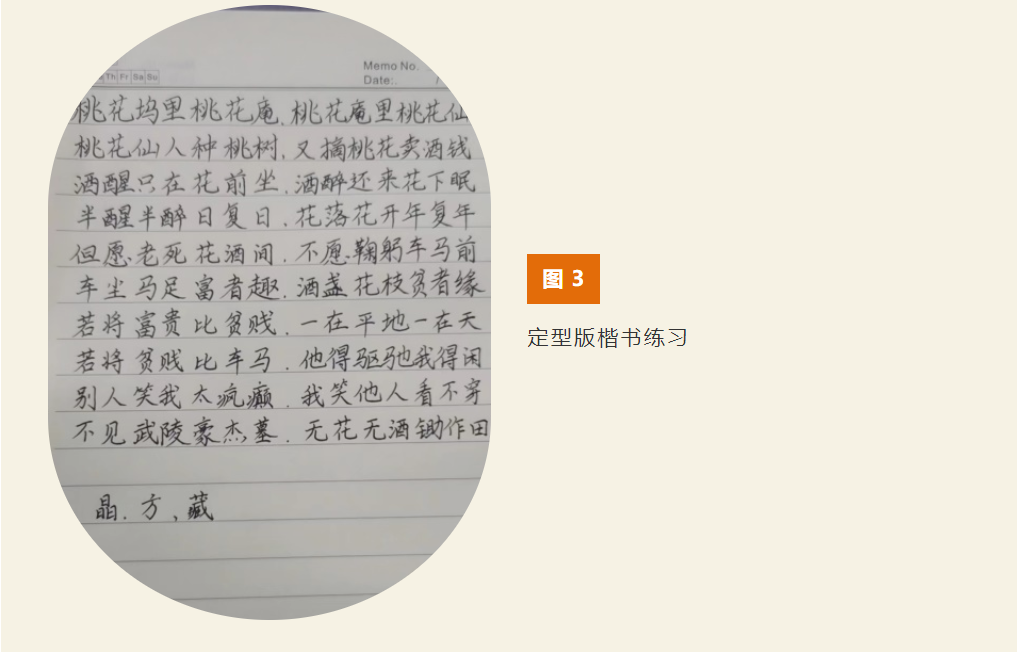 Th Fr Sa Su
Memo No.
Date:. /
桃花坞里桃花庵.桃花庵里桃花仙
桃花仙人种桃树.又摘桃花卖酒钱
酒醒只在花前坐.酒醉还来花下眠
半醒半醉日复日.花落花开年复年
但愿老死花酒间.不愿鞠躬车马前
车尘马足富者趣.酒盏花枝贫者缘
若将富贵比贫贱.一在平地一在天
若将贫贱比车马.他得驱驰我得闲
别人笑我太疯癫.我笑他人看不穿
不见武陵豪杰墓.无花无酒锄作田
晶.方、藏
图 3
定型版楷书练习